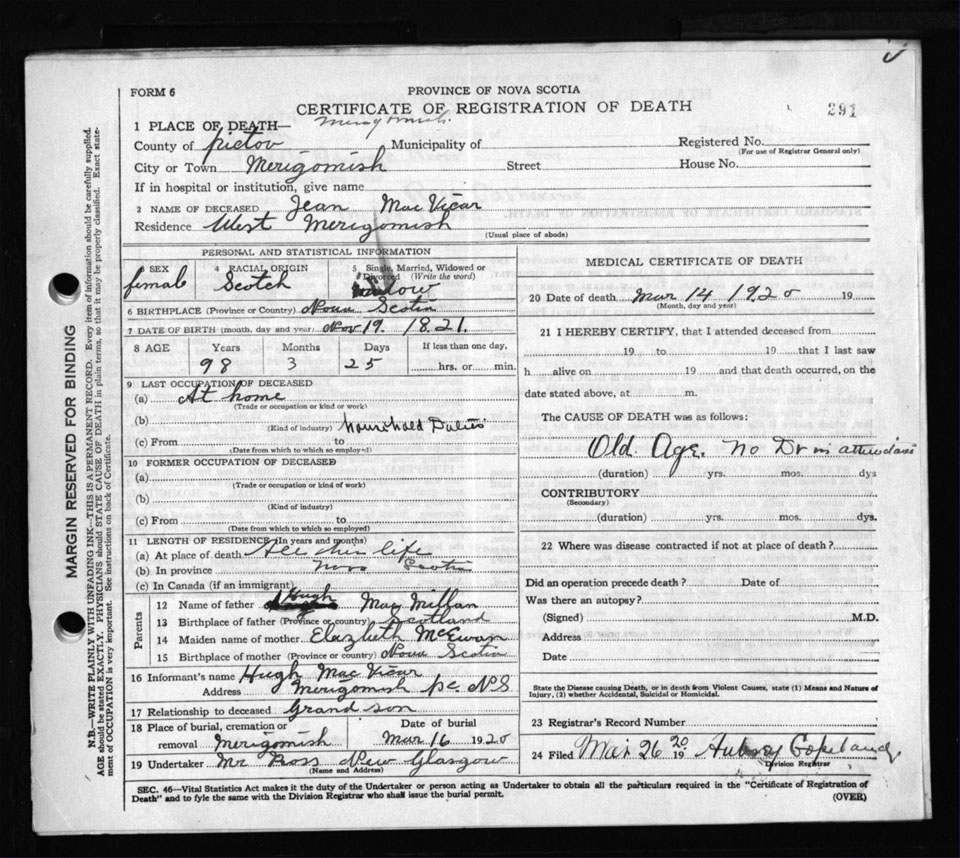 FORM 6
PROVINCE OF NOVA SCOTIA
CERTIFICATE OF REGISTRATION OF DEATH
291
1 PLACE OF DEATH— Merigomish
County of Pictou Municipality of Registered No.
(For use of Registrar General only)
City or Town Merigomish Street House No.
If in hospital or institution, give name
2 NAME OF DECEASED Jean MacVicar
Residence West Merigomish
(Usual place of abode)
PERSONAL AND STATISTICAL INFORMATION
3 SEX 4 RACIAL ORIGIN 5 Single, Married, Widowed or Divorced (Write the word)
female Scotch
6 BIRTHPLACE (Province or Country) Nova Scotia
7 DATE OF BIRTH (month, day and year) Nov 19. 1821.
8 AGE Years Months Days If less than one day,
98 3 25 hrs. or min.
9 LAST OCCUPATION OF DECEASED
(a) At home
(Trade or occupation or kind or work)
(b) Household Duties
(Kind of industry)
(c) From to
(Date from which to which so employed)
10 FORMER OCCUPATION OF DECEASED
(a)
(Trade or occupation or kind of work)
(b)
(Kind of industry)
(c) From to
(Date from which to which so employed)
11 LENGTH OF RESIDENCE (In years and months)
(a) At place of death All her life
(b) In province Nova Scotia
(c) In Canada (if an immigrant)
Parents
12 Name of father Hugh
13 Birthplace of father (Province or country) Scotland
14 Maiden name of mother Elazbeth McEwan
15 Birthplace of mother (Province or country) Nova Scotia
16 Informant's name Hugh MacVicar
Address Merigomish pc. N.S
17 Relationship to deceased Grand son
18 Place of burial, cremation or removal Merigomish Date of burial Mar 16 1920
19 Undertaker Mr Ross New Glasgow
(Name and Address)
MEDICAL CERTIFICATE OF DEATH
20 Date of death Mar 14 1920 19
(Month, day and year)
21 I HEREBY CERTIFY, that I attended deceased from
19 to 19 that I last saw
h alive on 19 and that death occurred, on the
date stated above, at m.
The CAUSE OF DEATH was as follows:
Old Age. No Dr in attendance
(duration) yrs. mos. dys
CONTRIBUTORY
(Secondary)
(duration) yrs. mos. dys.
22 Where was disease contracted if not at place of death?
Did an operation precede death? Date of
Was there an autopsy?
(Signed) M.D.
Address
Date
State the Disease causing Death, or in death from Violent Causes, state (1) Means and Nature of
Injury, (2) whether Accidental, Suicidal or Homicidal.
23 Registrar's Record Number
24 Filed Mar 26 19 20 Aubrey Copeland
Division Registrar
SEC. 46—Vital Statistics Act makes it the duty of the Undertaker or person acting as Undertaker to obtain all the particulars required in the "Certificate of Registration of
Death" and to fyle the same with the Division Registrar who shall issue the burial permit.
(OVER)
MARGIN RESERVED FOR BINDING
N.B.—WRITE PLAINLY WITH UNFADING INK—THIS IS A PERMANENT RECORD. Every item of information should be carefully supplied.
AGE should be stated EXACTLY. PHYSICIANS should STATE CAUSE OF DEATH in plain terms, so that it may be properly classified. Exact state-
ment of OCCUPATION is very important. See instructions on back of Certificate.